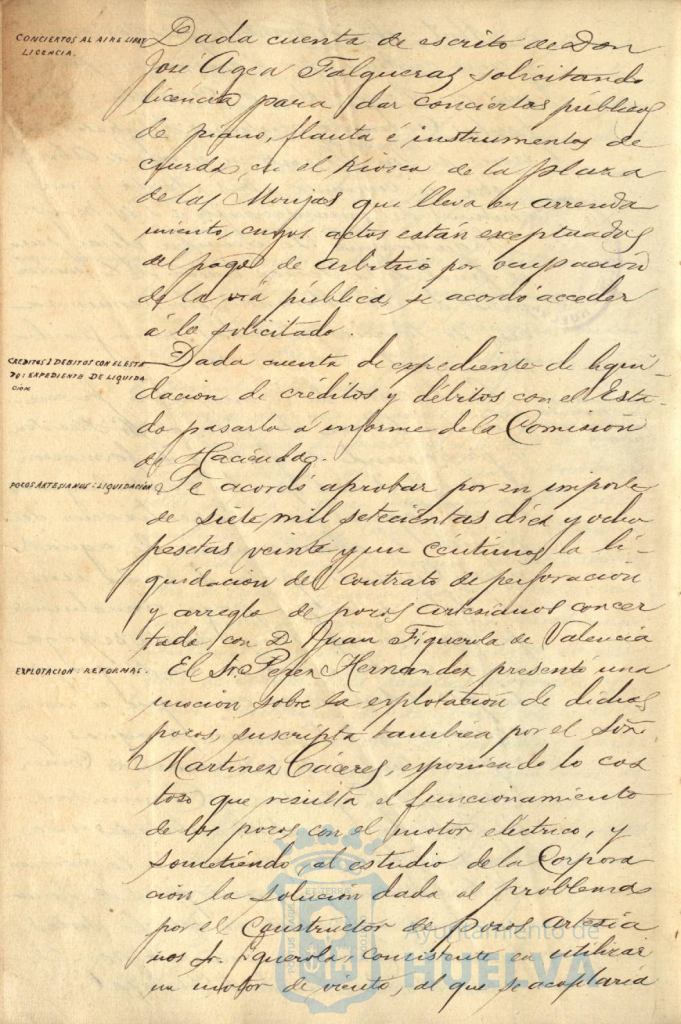 CONCIERTOS AL AIRE LIBRE
LICENCIA.
Dada cuenta de escrito de Don
José Agea Falgueras solicitando
licencia para dar conciertos públicos
de piano, flauta é instrumentos de
cuerda, en el Kiosco de la plaza
de las Monjas que lleva en arrenda
miento, cuyos actos están exceptuados
del pago de arbitrio por ocupación
de la vía pública, se acordó acceder
á lo solicitado.
CREDITOS Y DEBITOS CON EL ESTA
DO: EXPEDIENTE DE LIQUIDA
CIÓN
Dada cuenta de expediente de liqui-
dacion de créditos y débitos con el Esta-
do pasarlo á informe de la Comisión
de Hacienda.
POZOS ARTESIANOS: LIQUIDACIÓN
Se acordó aprobar por un importe
de siete mil setecientas diez y ocho
pesetas veinte y un céntimos la li-
quidación del contrato de perforación
y arreglo de pozos artesianos concer
tado con D. Juan Figuerola de Valencia
EXPLOTACION: REFORMAS.
El Sr. Perez Hernandez presentó una
mocion sobre la explotación de dichos
pozos, suscripta tambien por el Señor
Martinez Cáceres, exponiendo lo cos
toso que resulta el funcionamiento
de los pozos con el motor eléctrico, y
sometiendo al estudio de la Corpora
ción la solución dada al problema
por el constructor de pozos artesia
nos Sr. Figuerola, consistente en utilizar
un motor de viento, al que se acoplaría
Ayuntamiento de
HUELVA